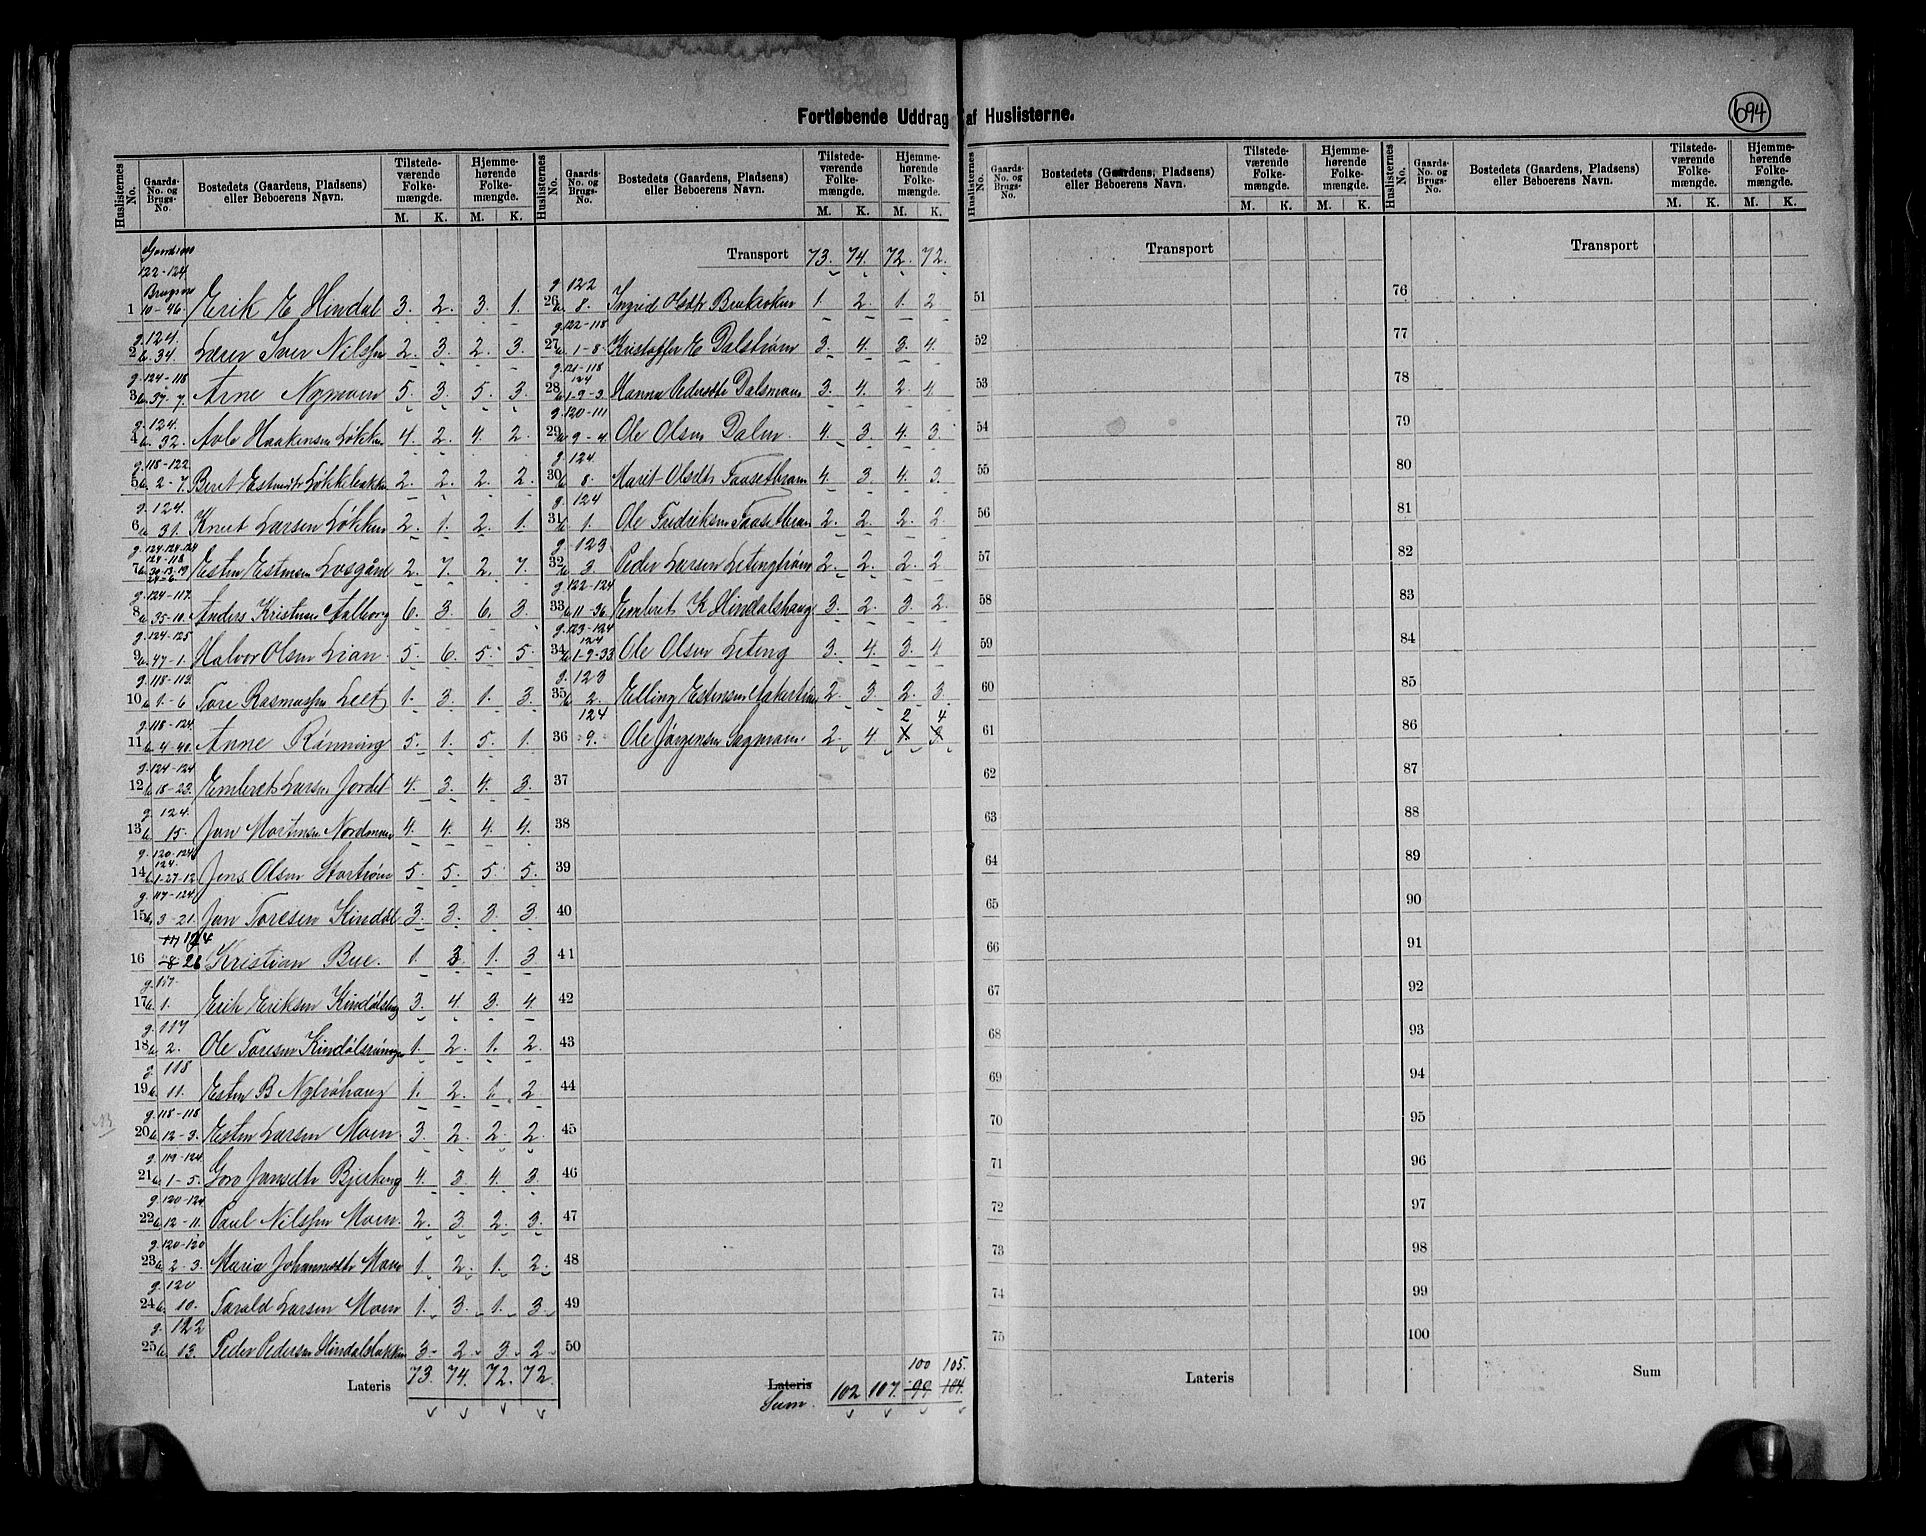 Fortløbende Uddrag af Huslisterne.
694
Huslisternes No. Gaards-No. og Brugs-No. Bostedets (Gaardens, Pladsens) eller Beboerens Navn. Tilstedeværende Folkemængde. M. K. Hjemmehørende Folkemængde. M. K.
122-124
1 10-46. Erik E Hindal 3. 2. 3. 1.
g. 124.
2 b. 34. Iver Nilssen 2. 3. 2. 3.
g. 124-118
3 b. 37. 7. Arne Nymoen 5. 3. 5. 3.
g. 124.
4 b. 32. Haakensen Løkken 4. 2. 4. 2.
g. 118-122.
5 b. 2-7. Beret 2. 2. 2. 2.
g. 124.
6 b. 31. Knut Larsen Løkken 2. 1. 2. 1.
g. 124-124-124
124-118
7 b. 30-13-19 Esten Estensen 2. 7. 2. 7.
24-6.
g. 124-117.
8 b. 35-10. Anders Kristensen Aalborg 6. 3. 6. 3.
g. 124-125
9 b. 47-1. Halvor Olsen Lian 5. 6. 5. 5.
g. 118-113.
10 b. 1-6 Tore Rasmussen Leet 1. 3. 1. 3.
g. 118-124.
11 b. 4-40. Anne Rønning 5. 1. 5. 1.
g. 124-124
12 b. 18-23. Embret Larsen Jordet 4. 3. 4. 3.
g. 124.
13 b. 15. Jon Mortensen Nordmoen 4. 4. 4. 4.
g. 120-124
124.
14 b. 1-27-12 Jens Olsen Stortrøen 5. 5. 5. 5.
g. 117-124
15 b. 3-21. Jon Toresen Kindøl 3. 3. 3. 3.
124
16 26 Kristian Bue. 1. 3 1. 3
g. 117.
17 b. 1. Erik Eriksen 3. 4. 3. 4
g. 117
18 b. 2. Ole Toresen 1. 2. 1. 2.
g. 118
19 b. 11. Esten B Nybrohaug 1. 2. 1. 2
g. 118-118
20 b. 12-3. Esten Larsen Moen. 3. 2. 2. 2.
g. 119-124.
21 b. 1-5. Goro Jonsdtr 4. 3 4. 3.
g. 120-124
22 b. 12-11. Paul Nilssen Moen. 2. 3. 2. 3.
g. 120-120
23 b. 2-3. Maria Johannesdtr Moen 1. 2. 1. 2.
g. 120
24 b. 10. Tarald Larsen Moen 1. 3. 1. 3.
g. 122
25 b. 13. Peder Pedersen Hindalsløkken 3- 2. 3 2.
Lateris 73. 74. 72. 72.
Huslisternes No. Gaards-No. og Brugs-No. Bostedets (Gaardens, Pladsens) eller Beboerens Navn. Tilstedeværende Folkemængde. M. K. Hjemmehørende Folkemængde. M. K.
Transport 73. 74. 72. 72.
g. 122
26 b. 8. Ingrid Olsdtr 1. 2. 1. 2
g. 122-118
27 b. 1-8. Kristoffer E Dalstrøen 3. 4. 3. 4.
g. 121-118
124
28 b. 1-9-3. Hanna Pedersdtr Dalsmoen 3. 4. 2. 4.
g. 120-111
29 b. 9-4. Ole Olsen Dalen. 4. 3. 4. 3.
g. 124
30 b. 8. Marit Olsdtr 4. 3 4. 3.
g. 124
31 b. 1. Ole Fredriksen 2. 2. 2. 2.
g. 123
32 b. 3. Peder Larsen 2. 2. 2. 2
g. 122-124
33 b. 11-36. Embret K Hindalshaug 3. 2. 3. 2.
g. 123-124
124
34 b. 1-9-33. Ole Olsen Leteng 3. 4. 3. 4
g. 123
35 b. 2. Elling Estensen 2. 3. 2. 3.
124 2 4
36 9. Ole Jørgensen Sagmoen. 2. 4 1 3
37
38
39
40
41
42
43
44
45
46
47
48
49
50
100 105.
Lateris Sum. 102 107. 99 104.
Huslisternes No. Gaards-No. og Brugs-No. Bostedets (Gaardens, Pladsens) eller Beboerens Navn. Tilstedeværende Folkemængde. M. K. Hjemmehørende Folkemængde. M. K.
Transport
51
52
53
54
55
56
57
58
59
60
61
62
63
64
65
66
67
68
69
70
71
72
73
74
75
Lateris
Huslisternes No. Gaards-No. og Brugs-No. Bostedets (Gaardens, Pladsens) eller Beboerens Navn. Tilstedeværende Folkemængde. M. K. Hjemmehørende Folkemængde. M. K.
Transport
76
77
78
79
80
81
82
83
84
85
86
87
88
89
90
91
92
93
94
95
96
97
98
99
100
Sum